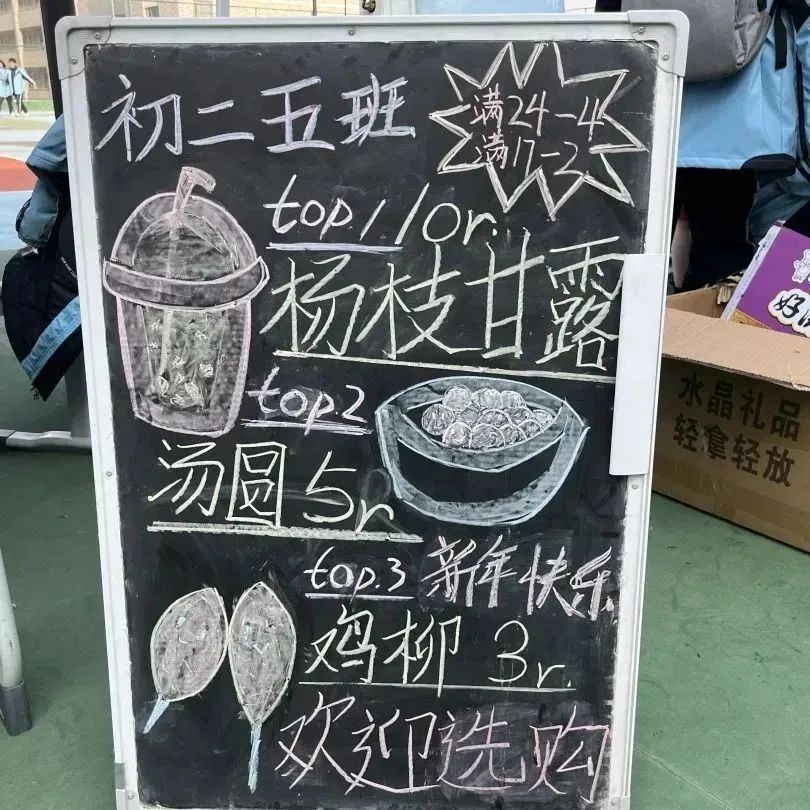 初二五班
满24-4
满17-3
top1 10r.
杨枝甘露
top2
汤圆 5r
top.3 新年快乐
鸡柳 3r.
欢迎选购
水晶礼品
轻拿轻放